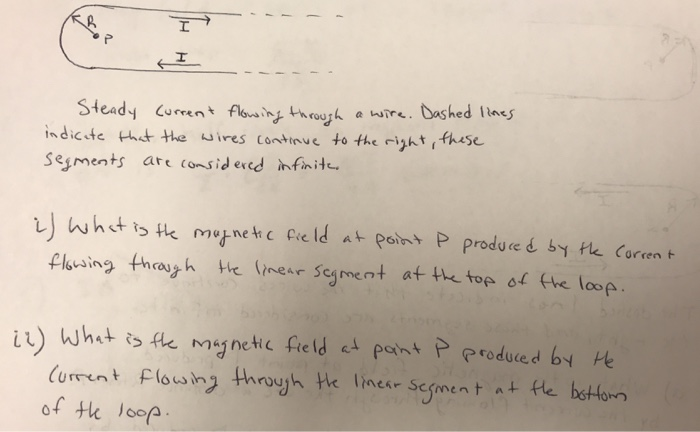 R
I
P
I
Steady current flowing through a wire. Dashed lines
indicate that the wires continue to the right, these
segments are considered infinite.
i) What is the magnetic field at point P produced by the Corrent
flowing through the linear segment at the top of the loop.
ii) What is the magnetic field at point P produced by the
Current flowing through the linear segment at the bottom
of the loop.